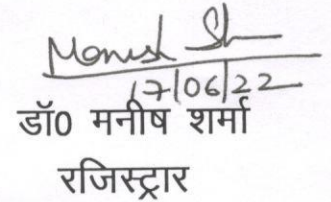 Manish Sh
17/06/22
डॉ0 मनीष शर्मा
रजिस्ट्रार